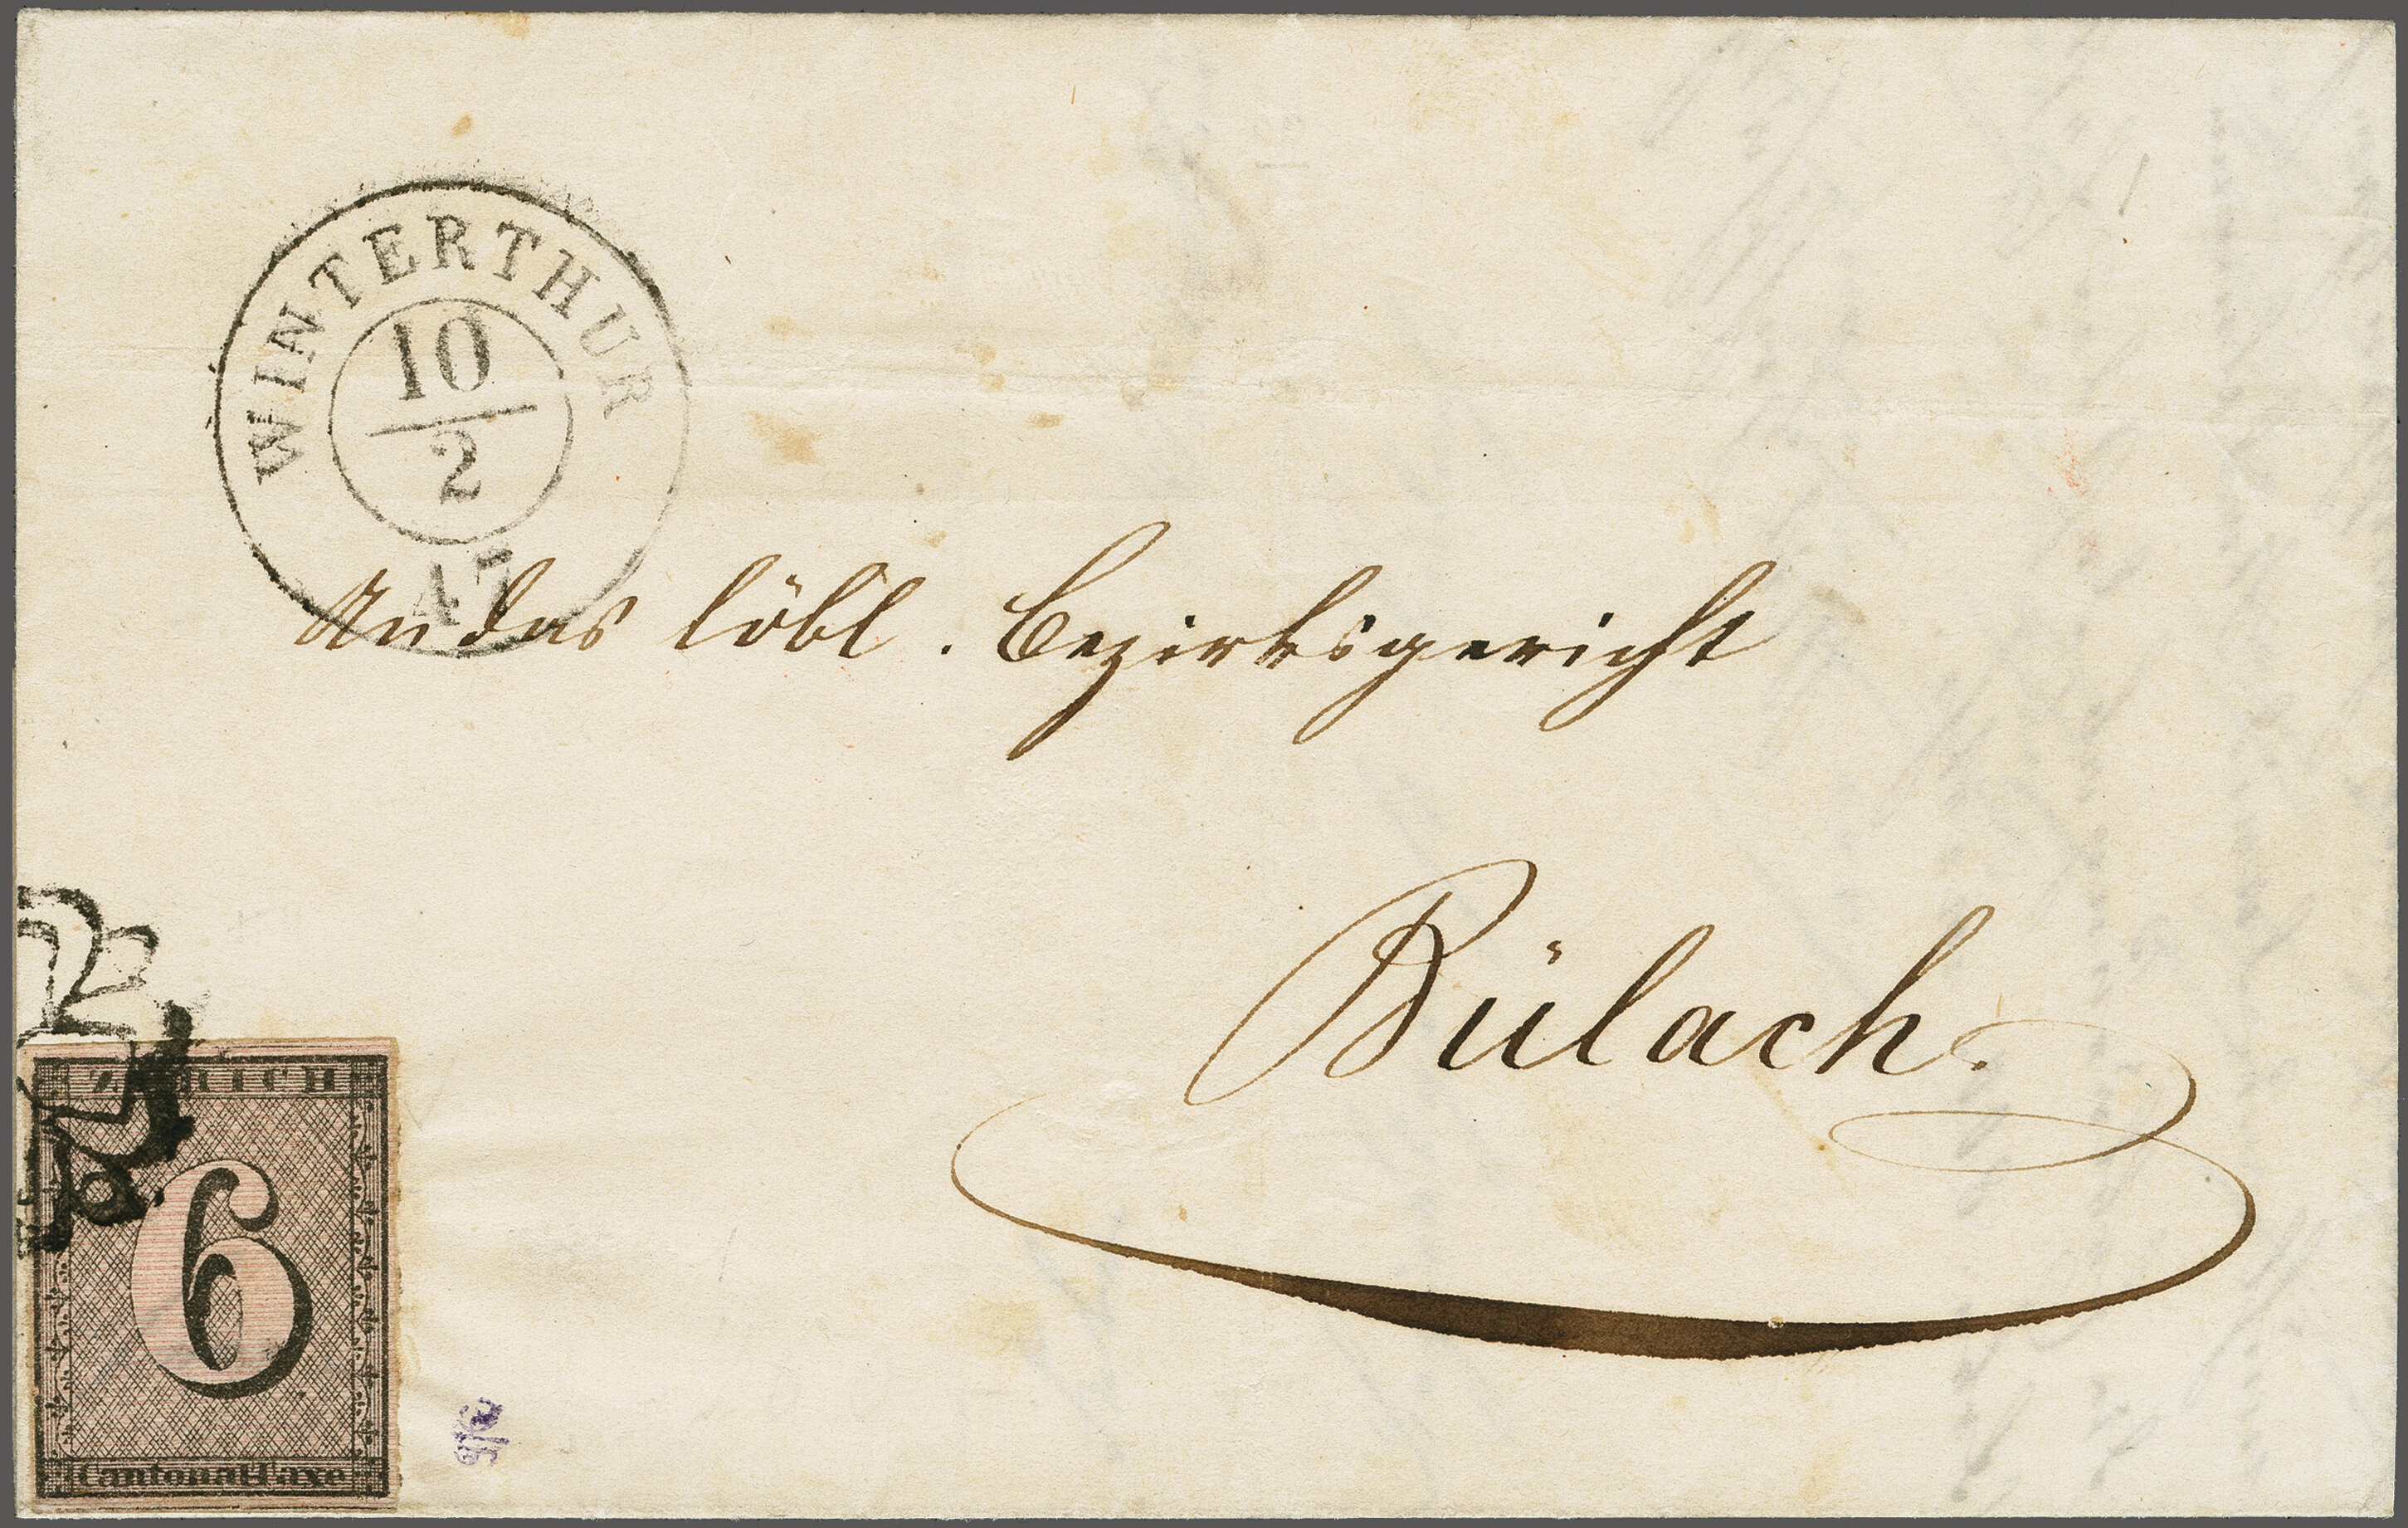 WINTERTHUR
10
2
47
An das löbl. Bezirksgericht
Bülach.
ZÜRICH
6
Cantonal-Taxe